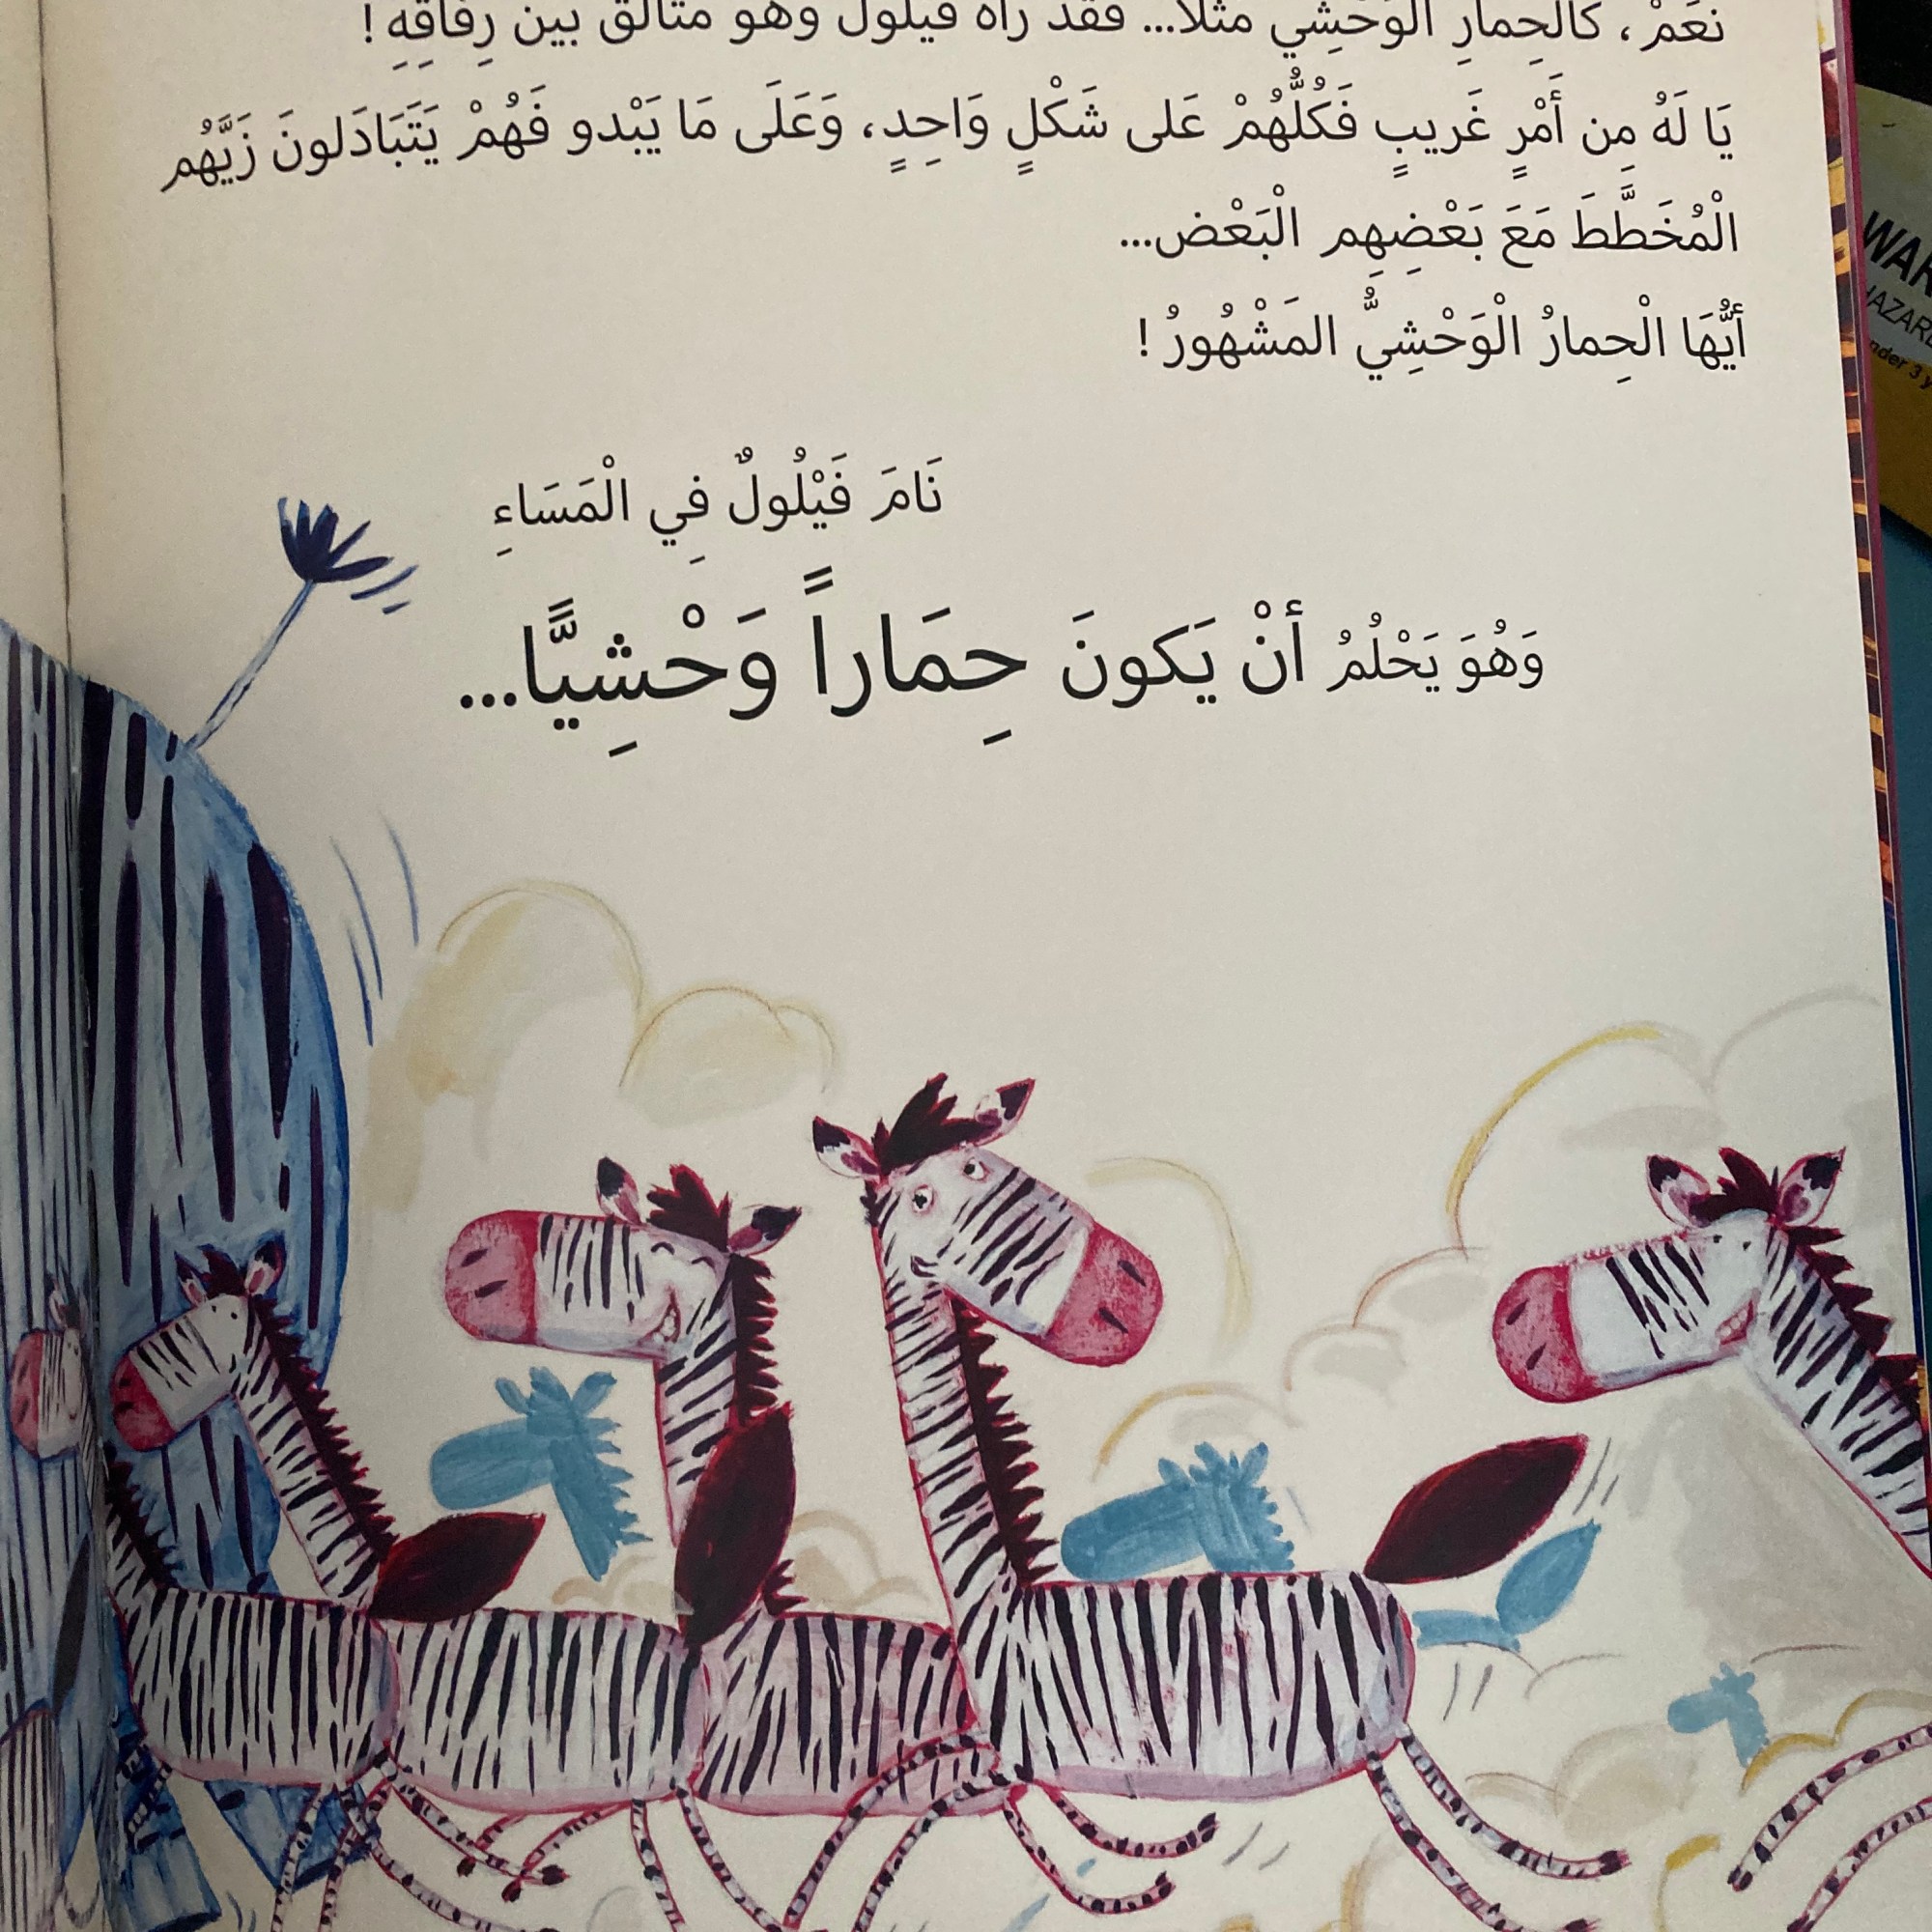 نَعَمْ، كَالْحِمارِ الْوَحْشِي مثلاً... فقد رآه فيلول وهو متألق بين رِفاقِهِ !
يَا لَهُ مِن أَمْرٍ غَريبٍ فَكُلُّهُمْ عَلى شَكْلٍ وَاحِدٍ، وَعَلَى مَا يَبْدو فَهُمْ يَتَبَادَلونَ زَيَّهُم
الْمُخَطَّطَ مَعَ بَعْضِهِم الْبَعْض...
أَيُّهَا الْحِمارُ الْوَحْشِيُّ المَشْهُورُ !
نَامَ فَيْلُولٌ فِي الْمَسَاءِ
وَهُوَ يَحْلُمُ أَنْ يَكونَ حِمَاراً وَحْشِيًّا...
WAR
HAZARD
nder 3 y